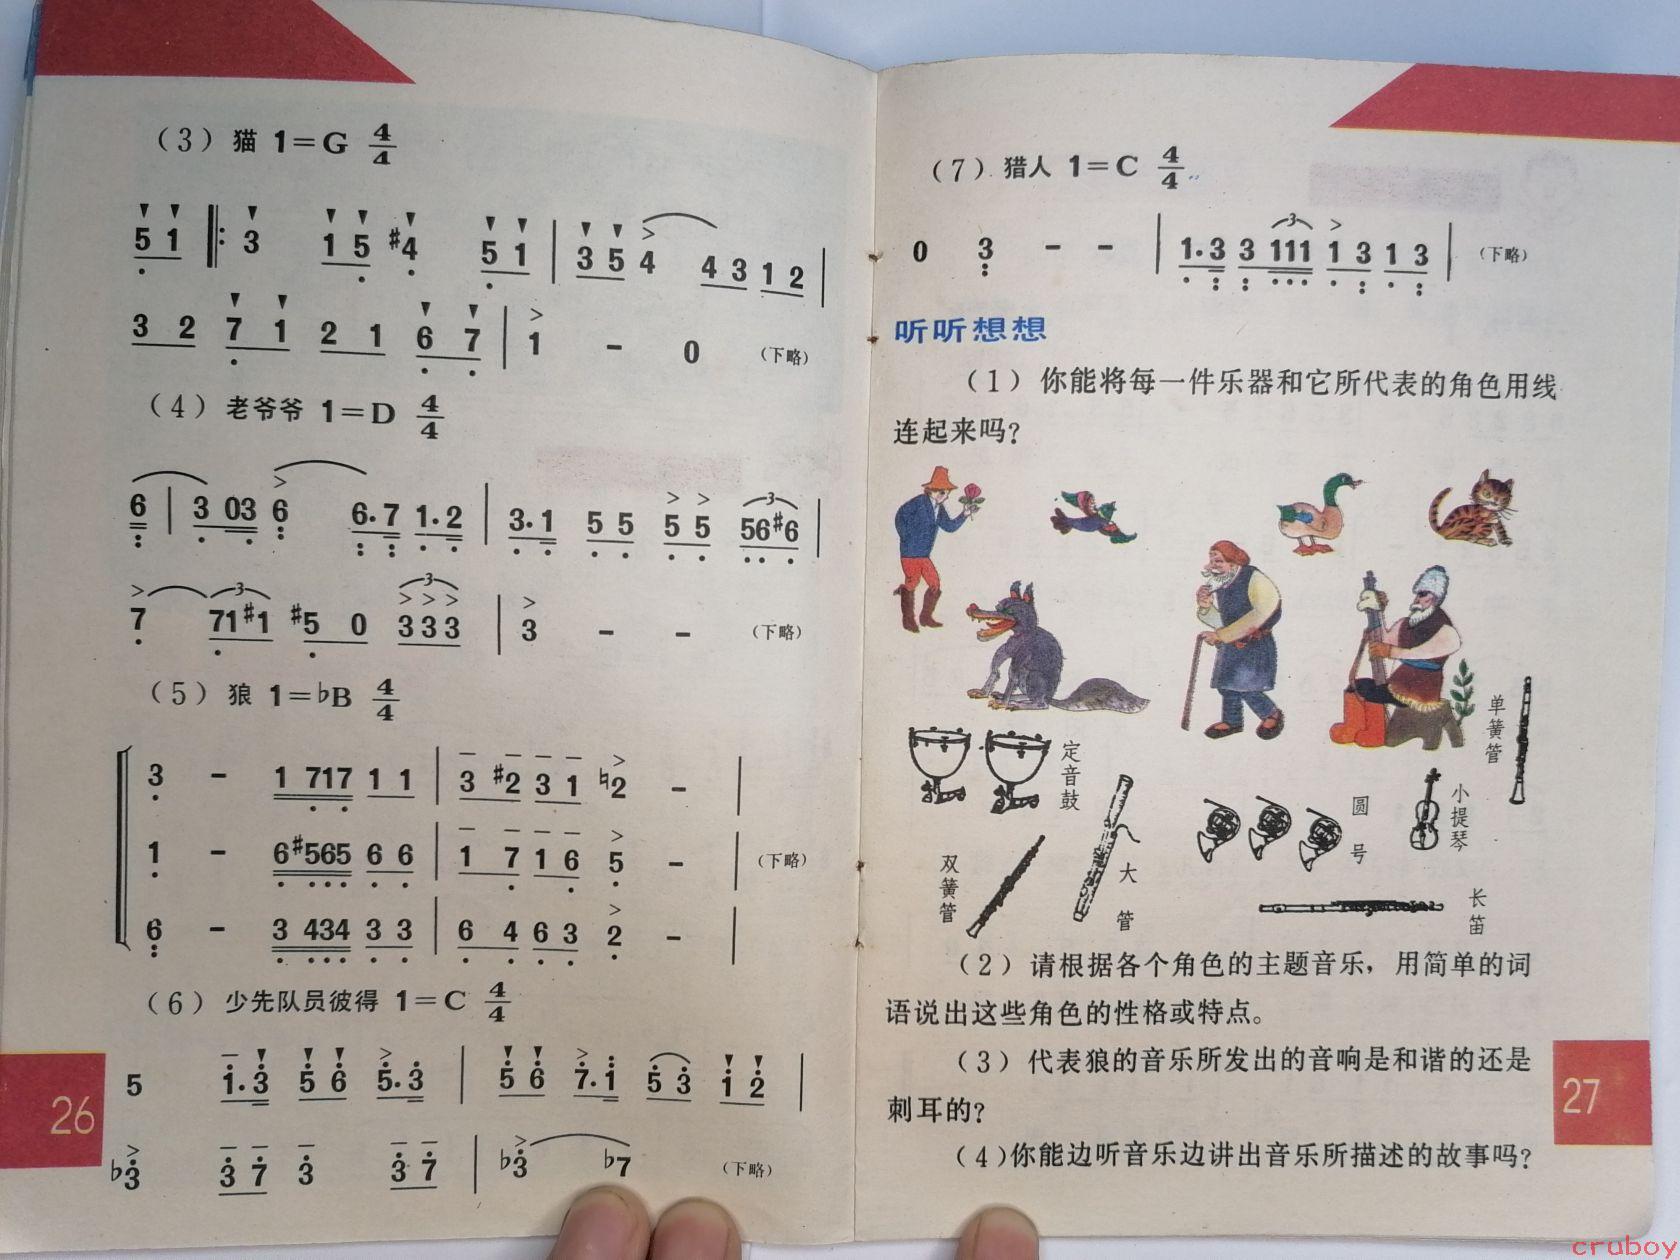 (3) 猫 1=G 4/4
5 1 ‖: 3 1 5 #4 5 1 | 3 5 4 4 3 1 2 |
3 2 7 1 2 1 6 7 | 1 - 0 (下略)
(4) 老爷爷 1=D 4/4
6 | 3 03 6 6.7 1.2 | 3.1 5 5 5 5 56#6 |
7 71#1 #5 0 333 | 3 - - (下略)
(5) 狼 1=♭B 4/4
3 - 1 717 1 1 | 3 #2 3 1 ♮2 - |
1 - 6#565 6 6 | 1 7 1 6 5 - | (下略)
6 - 3 434 3 3 | 6 4 6 3 2 - |
(6) 少先队员彼得 1=C 4/4
5 1.3 5 6 5.3 | 5 6 7.1 5 3 1 2 |
♭3 3 7 3 3 7 | ♭3 ♭7 (下略)
26
(7) 猎人 1=C 4/4
0 3 - - | 1.3 3 111 1 3 1 3 | (下略)
听听想想
(1) 你能将每一件乐器和它所代表的角色用线
连起来吗?
单簧管
定音鼓
小提琴
圆号
双簧管
大管
长笛
(2) 请根据各个角色的主题音乐，用简单的词
语说出这些角色的性格或特点。
(3) 代表狼的音乐所发出的音响是和谐的还是
刺耳的?
(4)你能边听音乐边讲出音乐所描述的故事吗?
27
cruboy